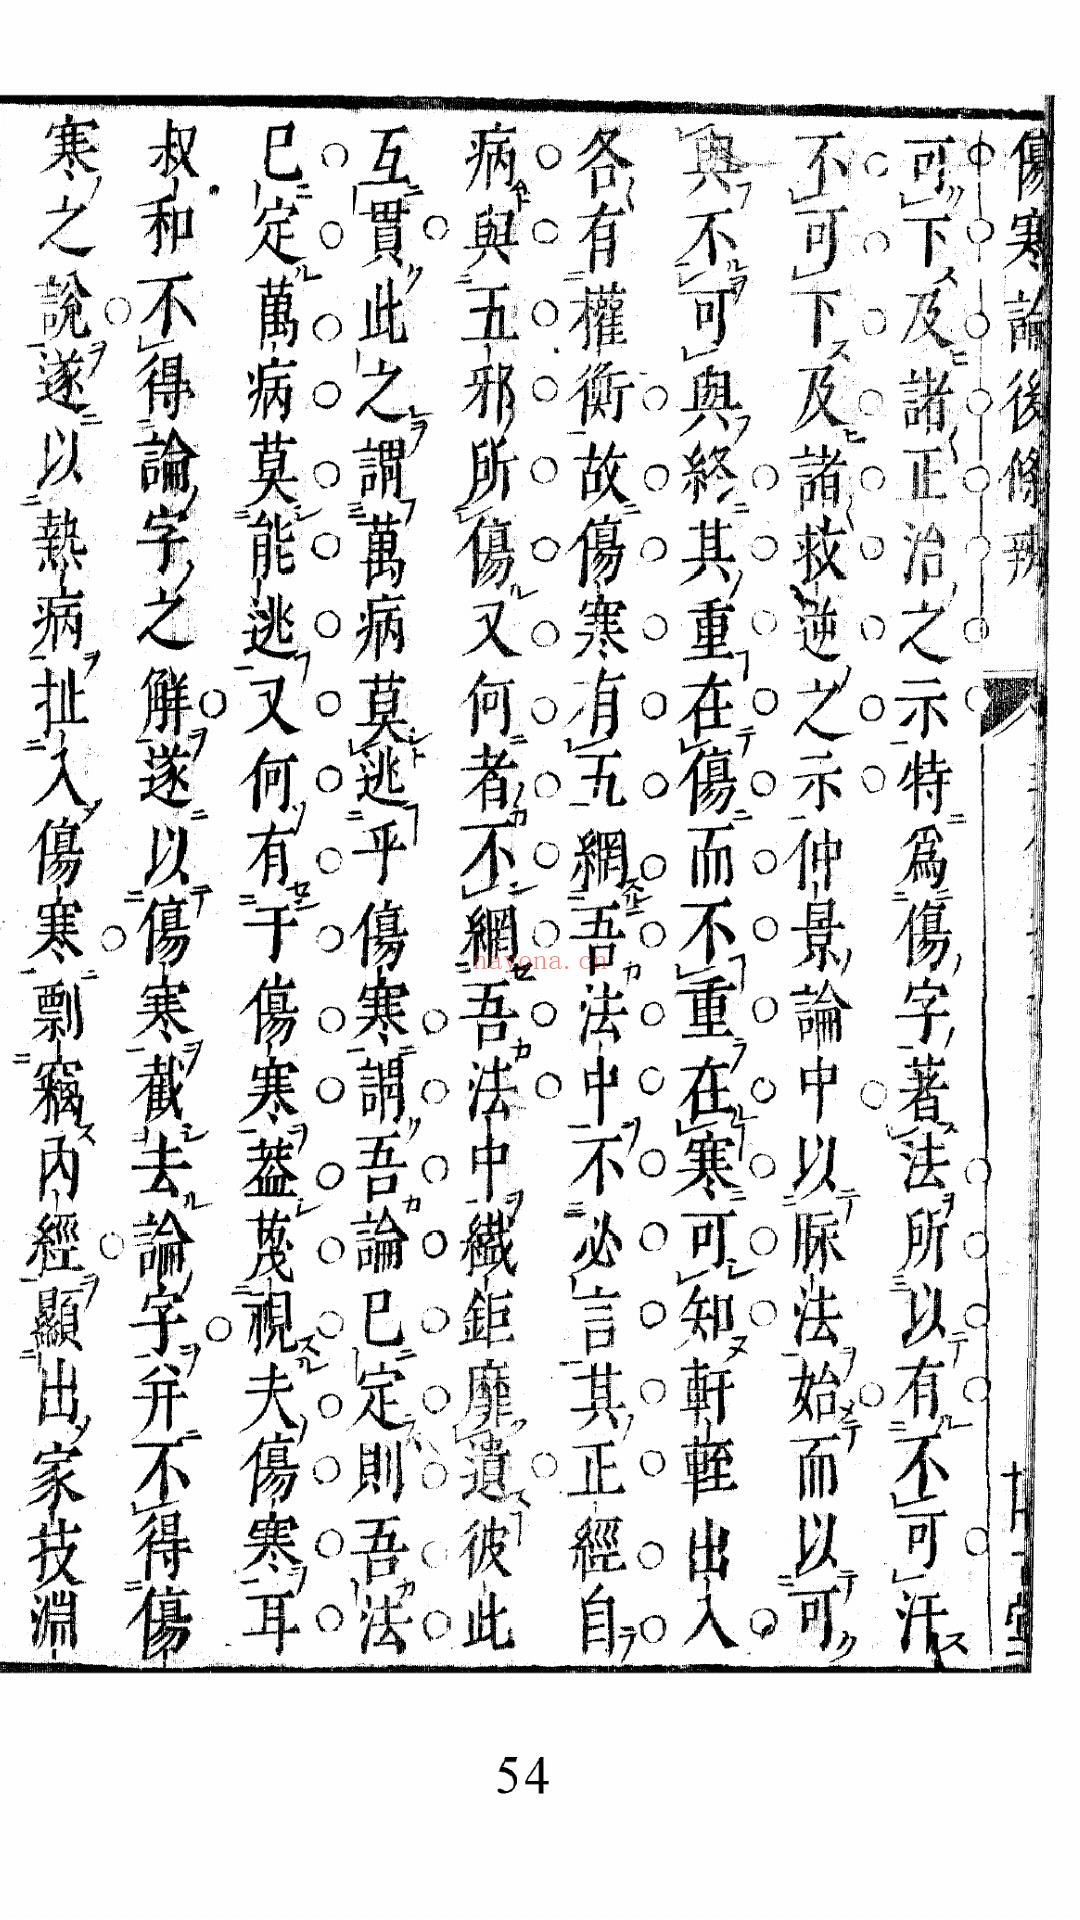 傷寒論後條辨
可下及諸正治之示特爲傷字著法所以有不可汗
不可下及諸救逆之示仲景論中以脈法始而以可
與不可與終其重在傷而不重在寒可知軒輊出入
各有權衡故傷寒有五網吾法中不必言其正經自
病與五邪所傷又何者不網吾法中纎鉅靡遺彼此
互貫此之謂萬病莫逃乎傷寒謂吾論已定則吾法
已定萬病莫能逃又何有于傷寒葢蔑視夫傷寒耳
叔和不得論字之解遂以傷寒截去論字幷不得傷
寒之說遂以熱病扯入傷寒剽竊內經顯出家技淵
nayona.cn
54